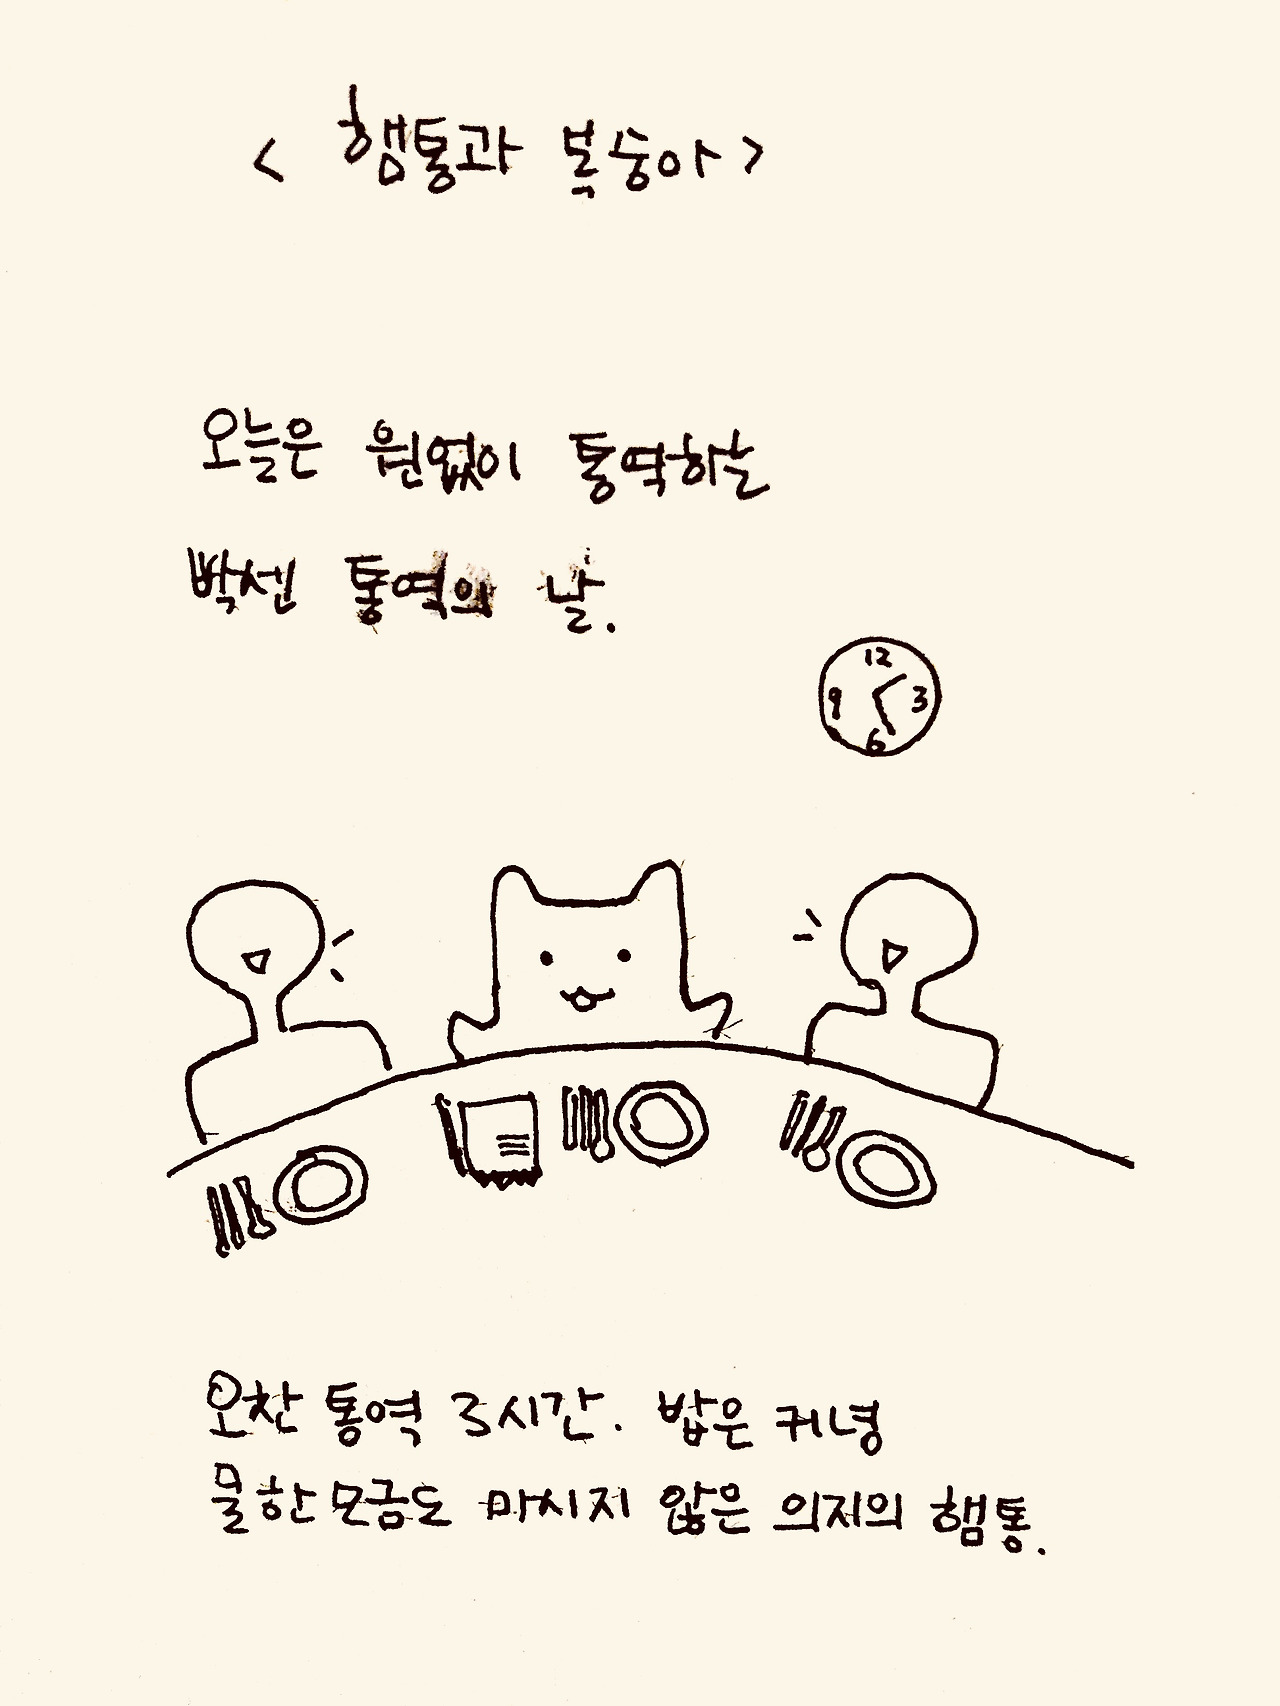 < 햄통과 복숭아 >
오늘은 원없이 통역하는
빡센 통역의 날.
12
9 3
6
오찬 통역 3시간. 밥은 커녕
물 한 모금도 마시지 않은 의지의 햄통.